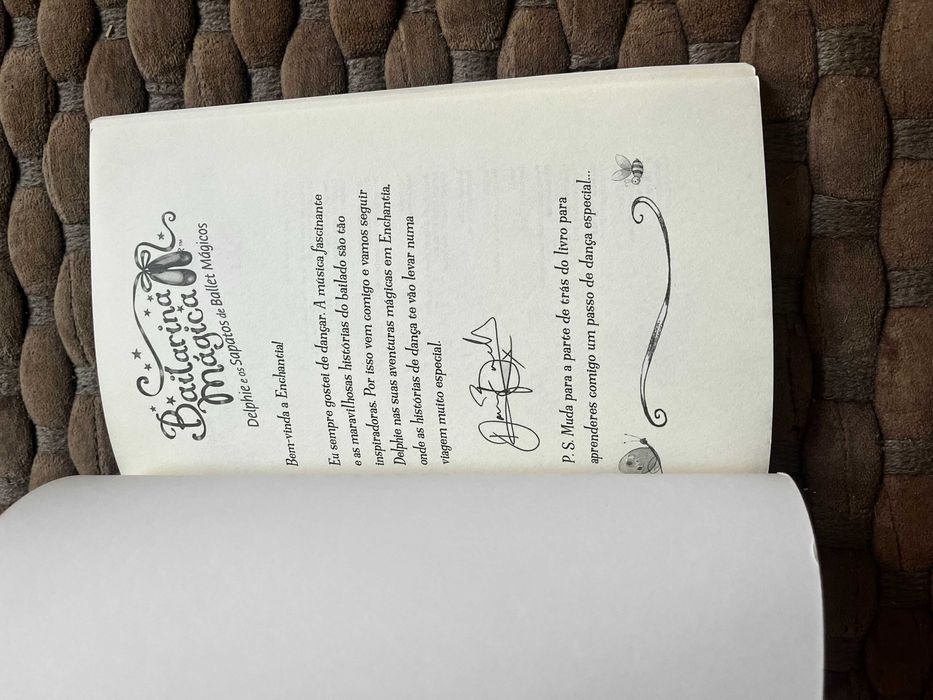 Bailarina
Mágica™
Delphie e os Sapatos de Ballet Mágicos
Bem-vinda a Enchantia!
Eu sempre gostei de dançar. A música fascinante
e as maravilhosas histórias do bailado são tão
inspiradoras. Por isso vem comigo e vamos seguir
Delphie nas suas aventuras mágicas em Enchantia,
onde as histórias de dança te vão levar numa
viagem muito especial.
P. S. Muda para a parte de trás do livro para
aprenderes comigo um passo de dança especial...